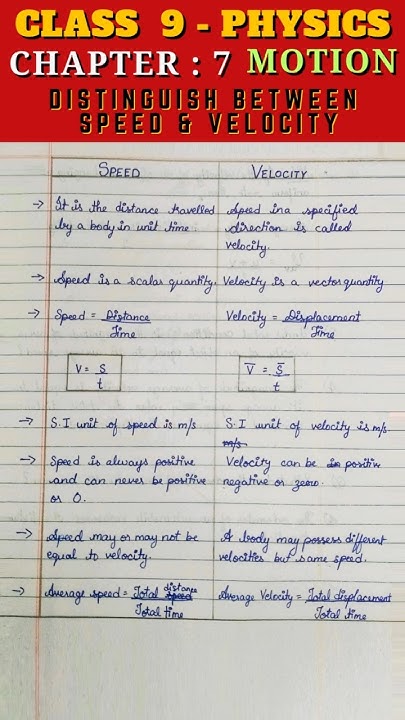 CLASS 9 - PHYSICS
CHAPTER : 7 MOTION
DISTINGUISH BETWEEN
SPEED & VELOCITY
SPEED
VELOCITY
→ It is the distance travelled
by a body in unit time.
Speed in a specified
direction is called
velocity.
→ Speed is a scalar quantity.
Velocity is a vector quantity
→ Speed = Distance
Time
Velocity = Displacement
Time
V = S
t
V̅ = S̅
t
→ S.I unit of speed is m/s
S.I unit of velocity is m/s.
m/s
→ Speed is always positive
and can never be positive
or 0.
Velocity can be in positive
negative or zero.
→ Speed may or may not be
equal to velocity.
A body may possess different
velocities but same speed.
→ Average speed = Total distance speed
Total time
Average Velocity = Total displacement
Total time